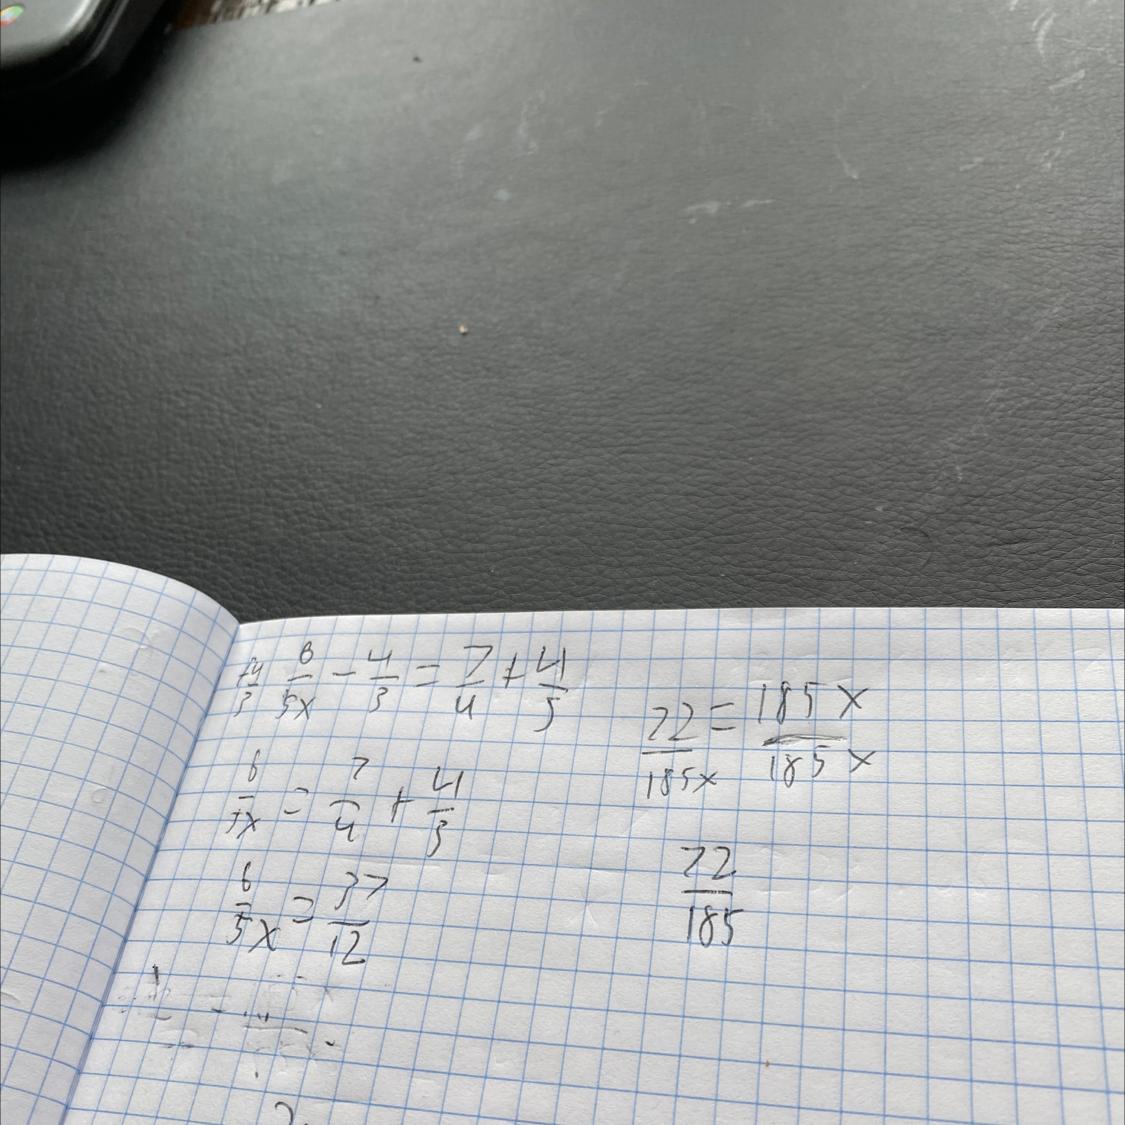 +4/3 6/5x - 4/3 = 7/4 + 4/3
6/5x = 7/4 + 4/3
6/5x = 37/12
72/185x = 185x/185x
72/185